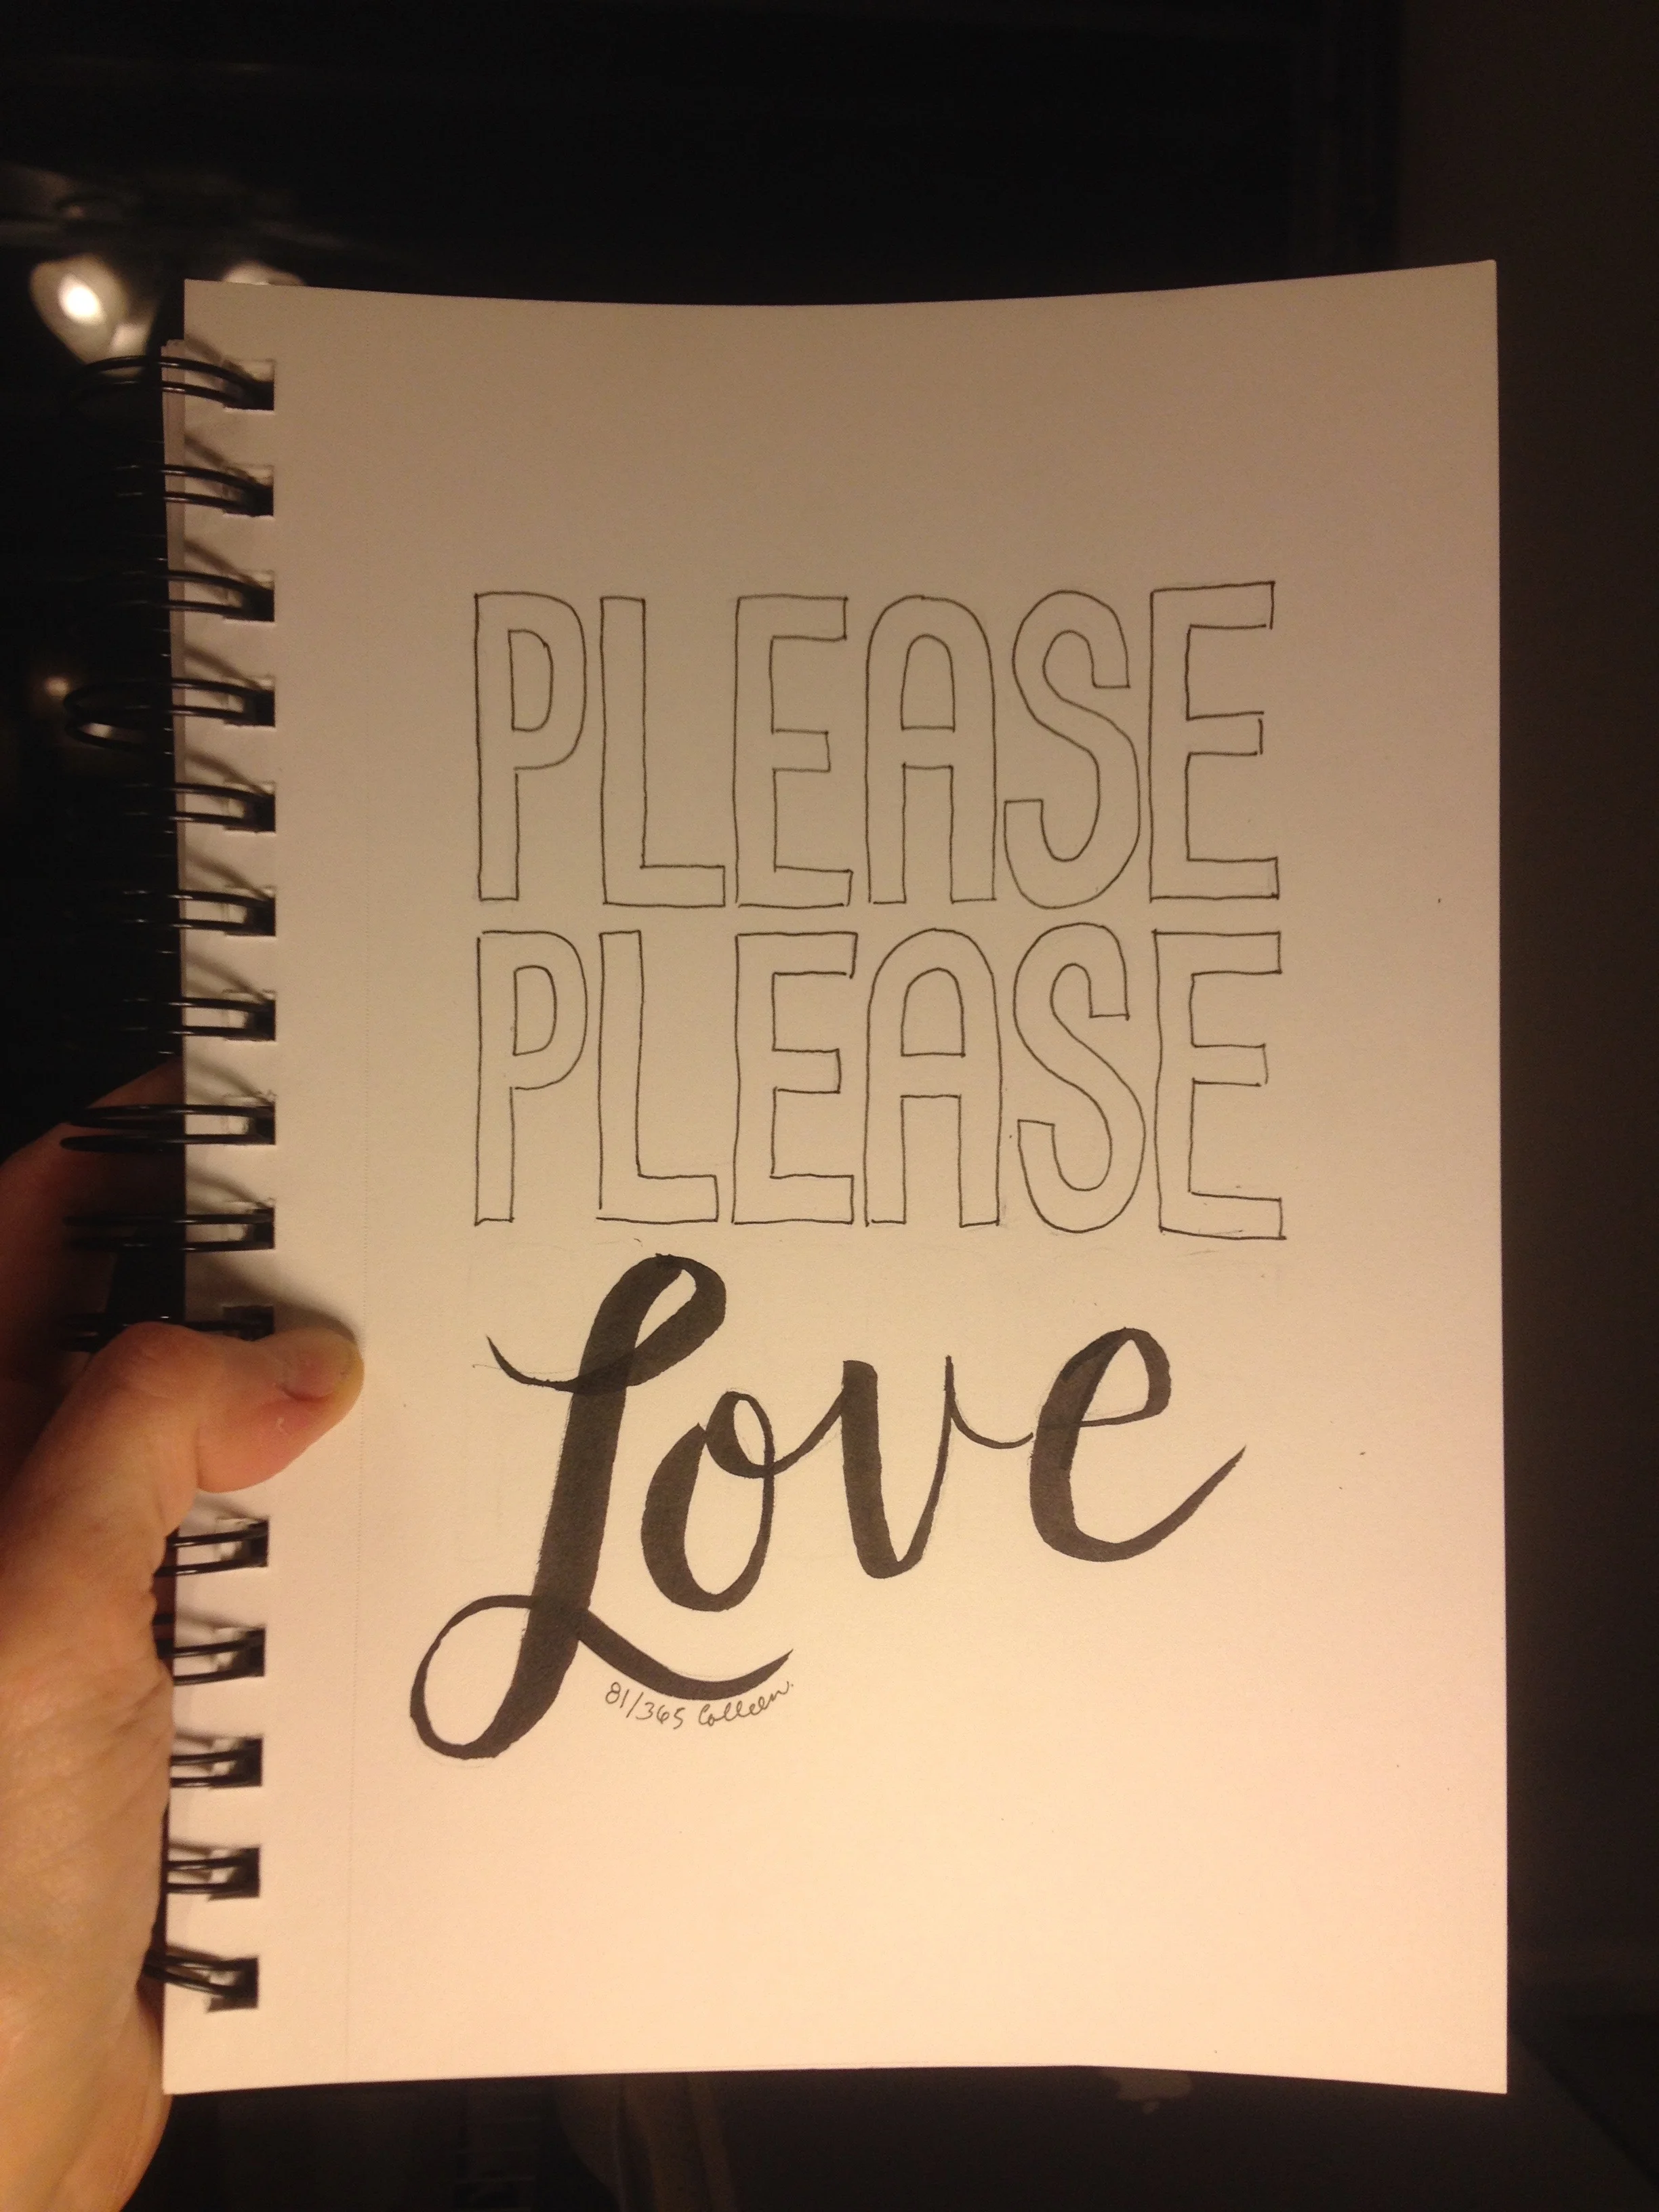 PLEASE
PLEASE
Love
81/365 Colleen.